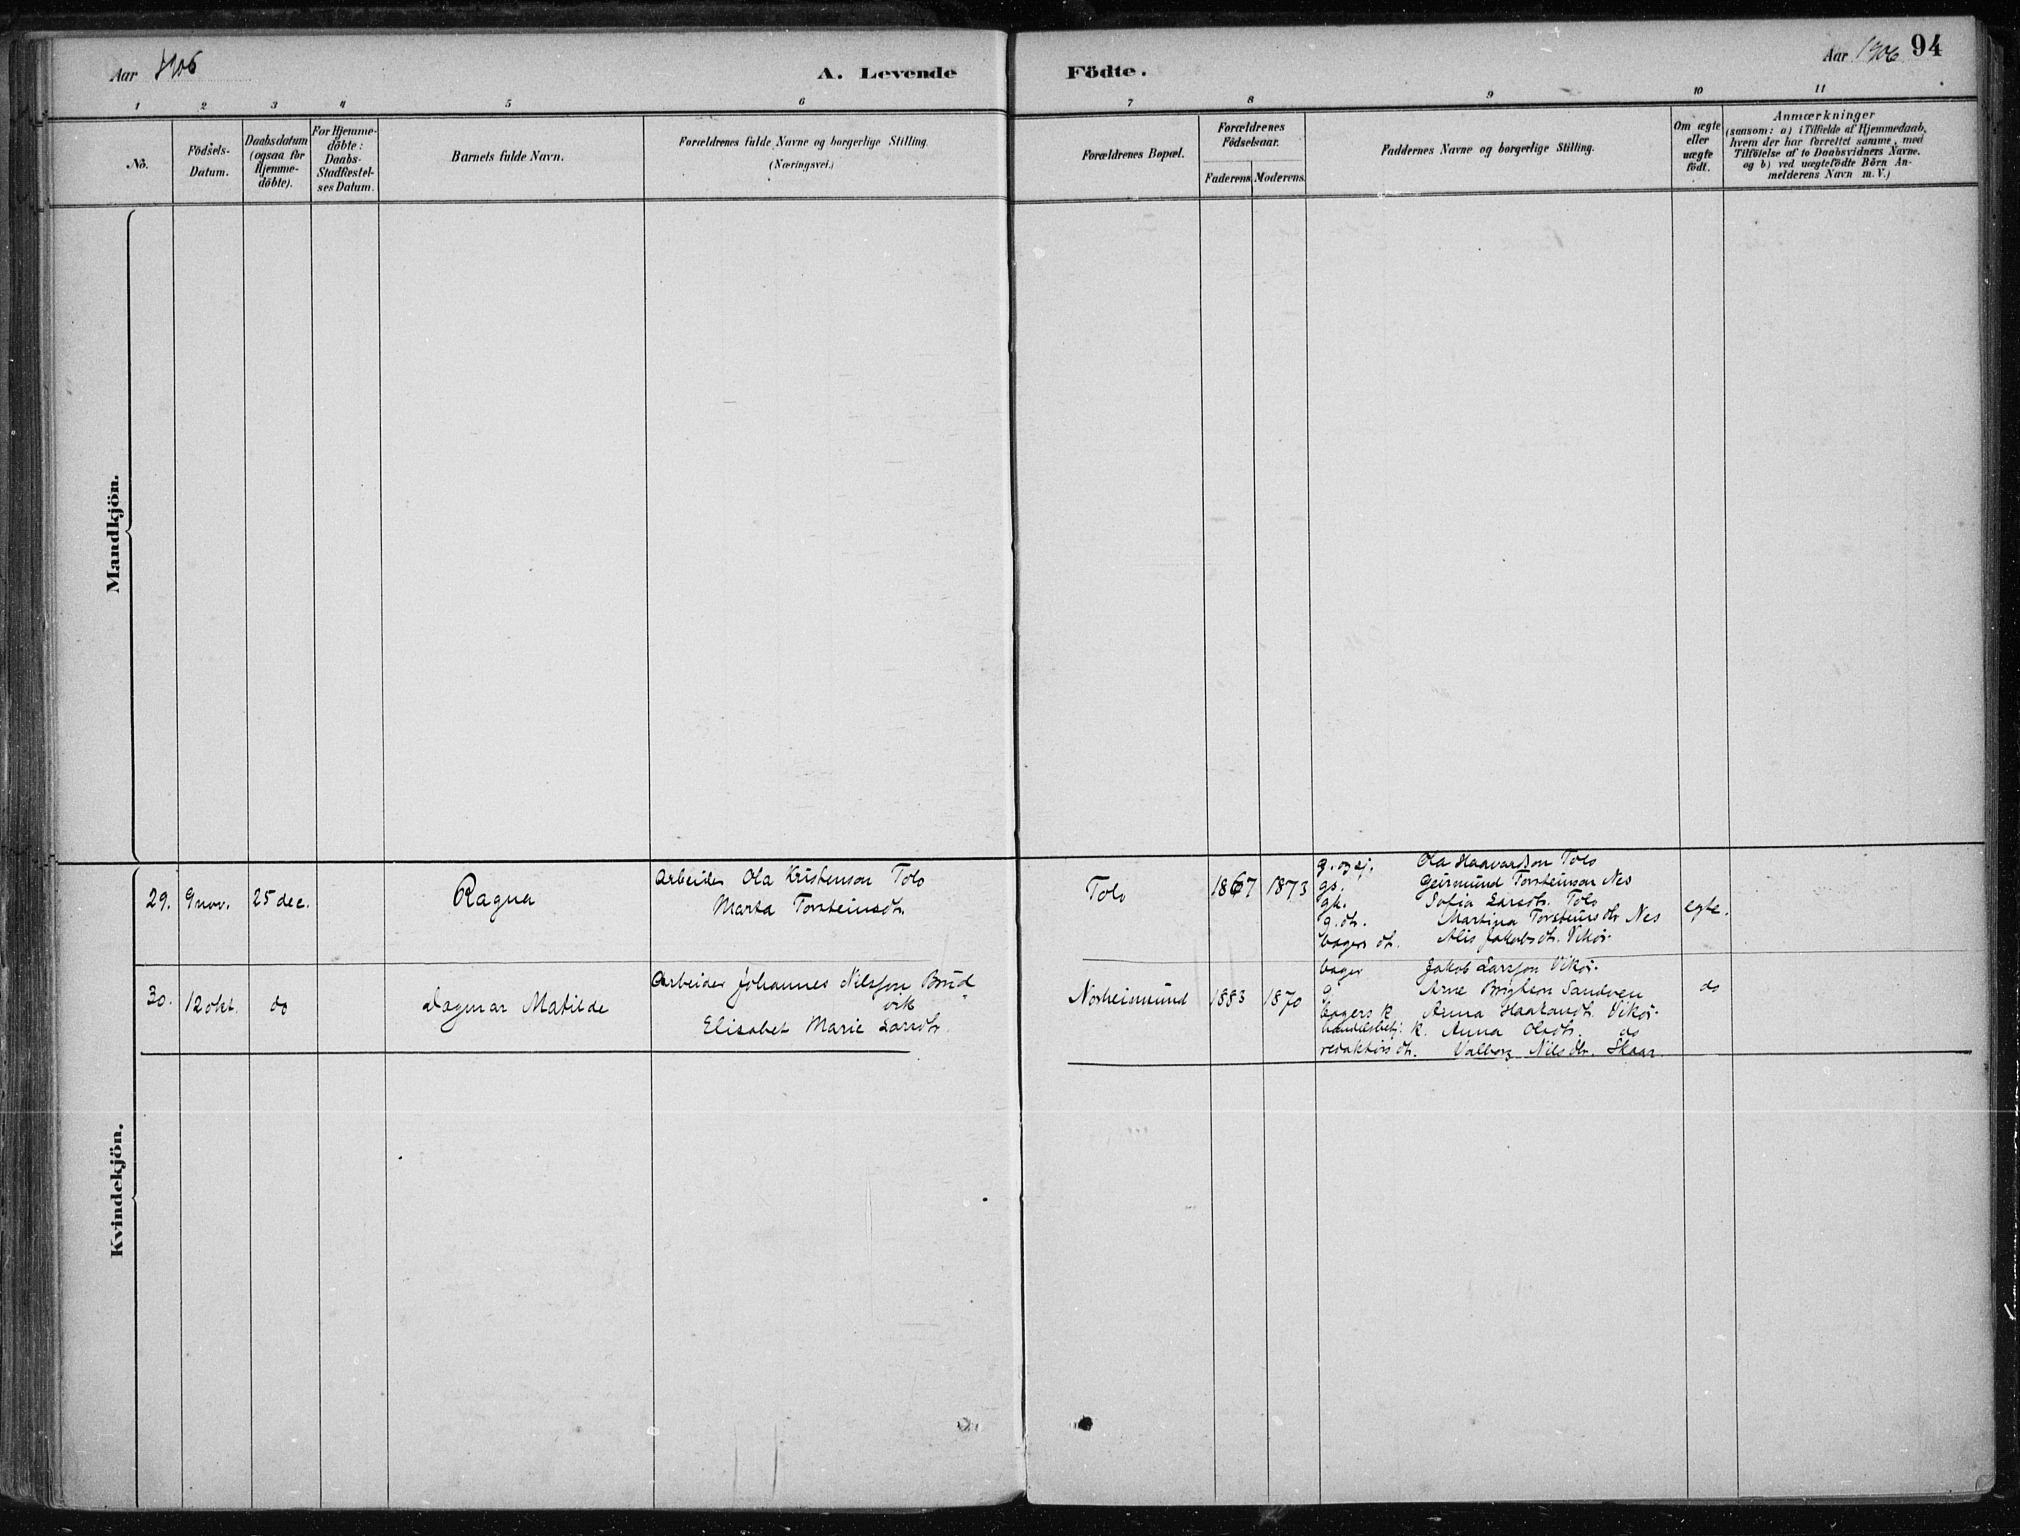 Aar 1906
A. Levende
Födte.
Aar 1906
94
1 2 3 4 5 6 7 8 9 10 11
Nö.
Födsels-
Datum.
Daabsdatum
(ogsaa for
Hjemme-
döbte).
For Hjemme-
döbte:
Daabs-
Stadfæstel-
ses Datum.
Barnets fulde Navn.
Forældrenes fulde Navne og borgerlige Stilling
(Næringsvei.)
Forældrenes Bopæl.
Forældrenes
Födselsaar.
Faderens.
Moderens.
Faddernes Navne og borgerlige Stilling.
Om ægte
eller
uægte
födt.
Anmærkninger
(saasom: a) i Tilfælde af Hjemmedaab,
hvem der har forrettet samme, med
Tilföielse af to Daabsvidners Navne.
og b) ved uægtefödte Börn An-
melderens Navn m.V.)
Mandkjön.
Kvindekjön.
29.
9 nov.
25 dec.
Ragna
Arbeider Ola Kristenson Tolo
Marta Torsteinsdtr.
Tolo
1867
1873
Ola Haavardson Tolo
gs. Geirmund Torsteinson Nes
gk. Sofia Larsdtr. Tolo
g. dr. Martina Torsteinsdtr Nes
bagers dr. Alis Jakobsdtr. Vikör
egte.
30.
12 okt.
do
Dagmar Matilde
Arbeider Johannes Nilsson Brud
vik
Elisabet Marie Larsdtr.
Norheimsund
1883
1870
bager Jakob Larsson Vikör.
g Arne Sandven
bagers k. Anna Vikör.
k. Anna Olsdtr. do
redaktörs dr. Valborg Nilsdtr. Skaar
do